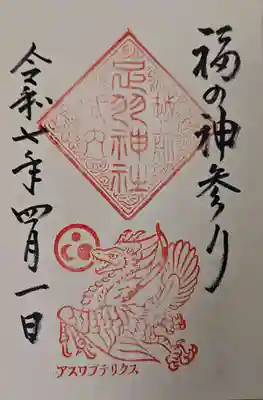 福の神参り
足羽神社
令和七年四月一日
アスワプテリクス